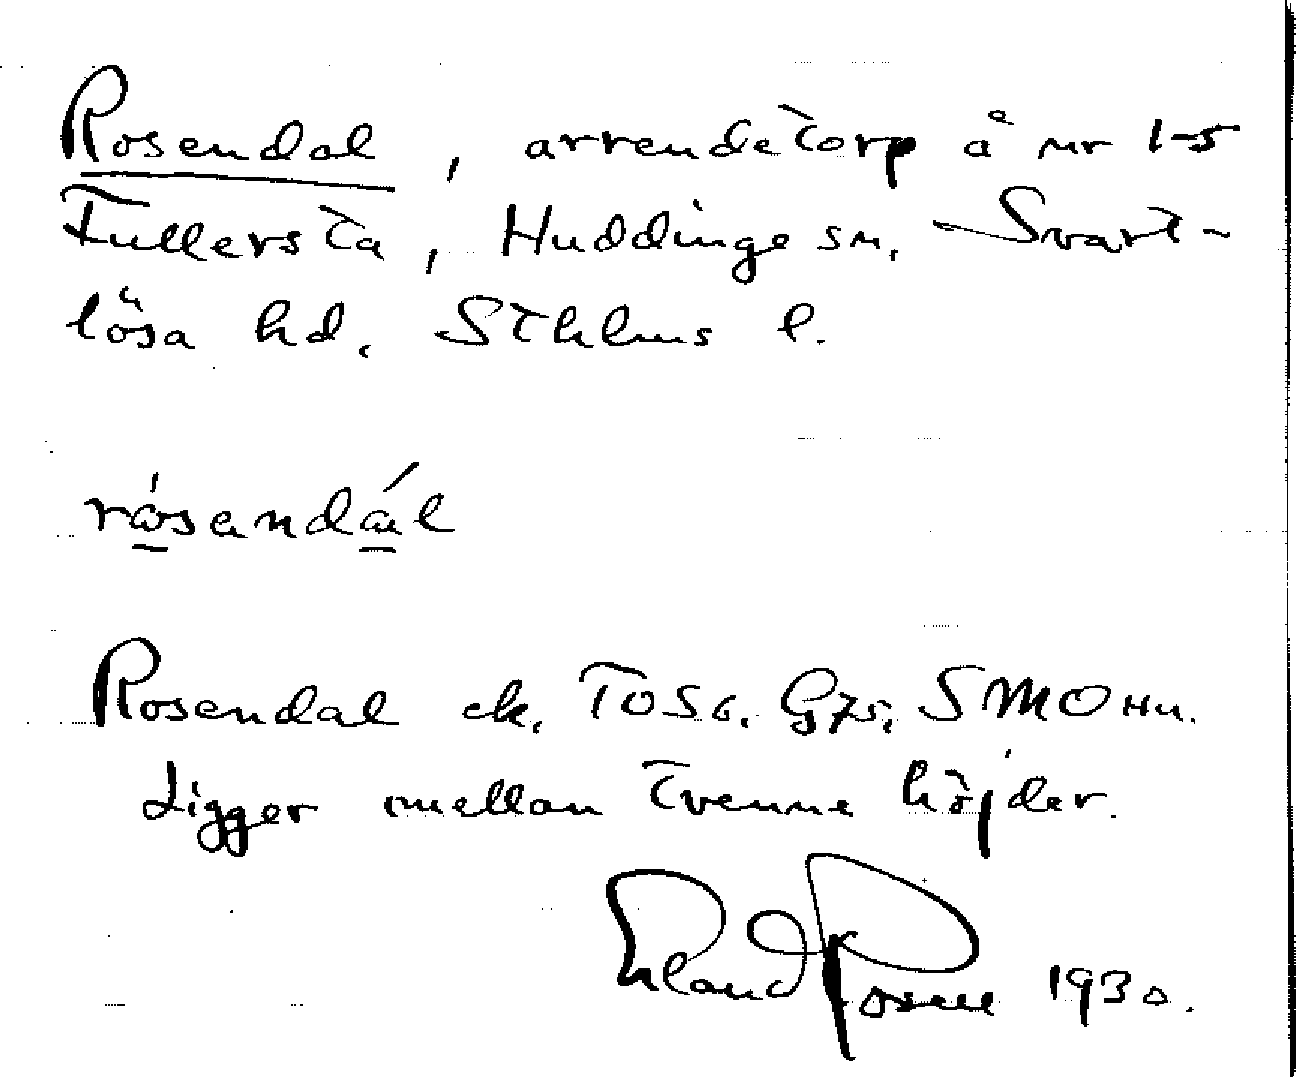 Rosendal, arrendetorp å nr 1-5
Fullersta, Huddinge sn. Svart-
lösa hd. Sthlms l.
rósandál
Rosendal ek. TOSG. Gzs; SMOHu.
Ligger mellan tvenne höjder.
Erland Rosell 1930.